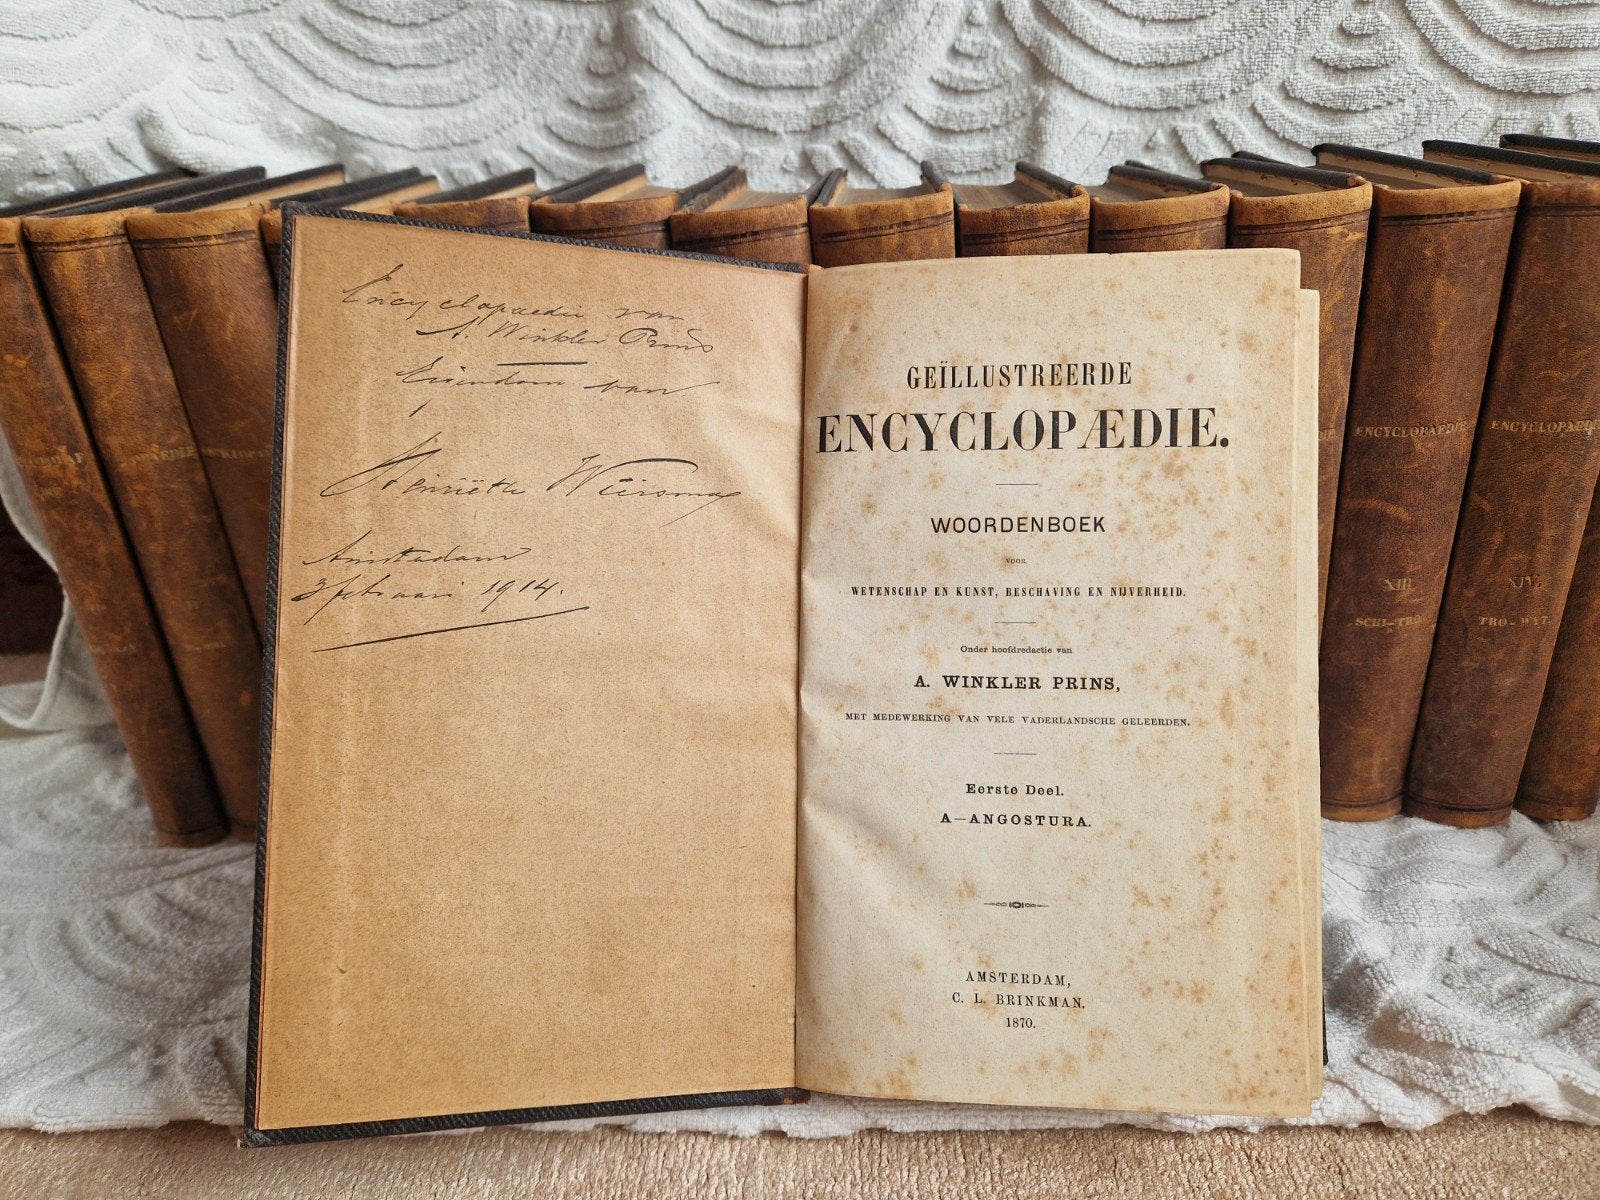 Encyclopaedie van
A. Winkler Prins
Eigendom van
Henriëtte Wiersma
Amsterdam
3 februari 1914.
GEÏLLUSTREERDE
ENCYCLOPÆDIE.
WOORDENBOEK
VOOR
WETENSCHAP EN KUNST, BESCHAVING EN NIJVERHEID.
Onder hoofdredactie van
A. WINKLER PRINS,
MET MEDEWERKING VAN VELE VADERLANDSCHE GELEERDEN.
Eerste Deel.
A—ANGOSTURA.
AMSTERDAM,
C. L. BRINKMAN.
1870.
ENCYCLOPAEDIE
XIII
SCHI-TRO
ENCYCLOPAEDIE
XIV.
TRO-WYT.